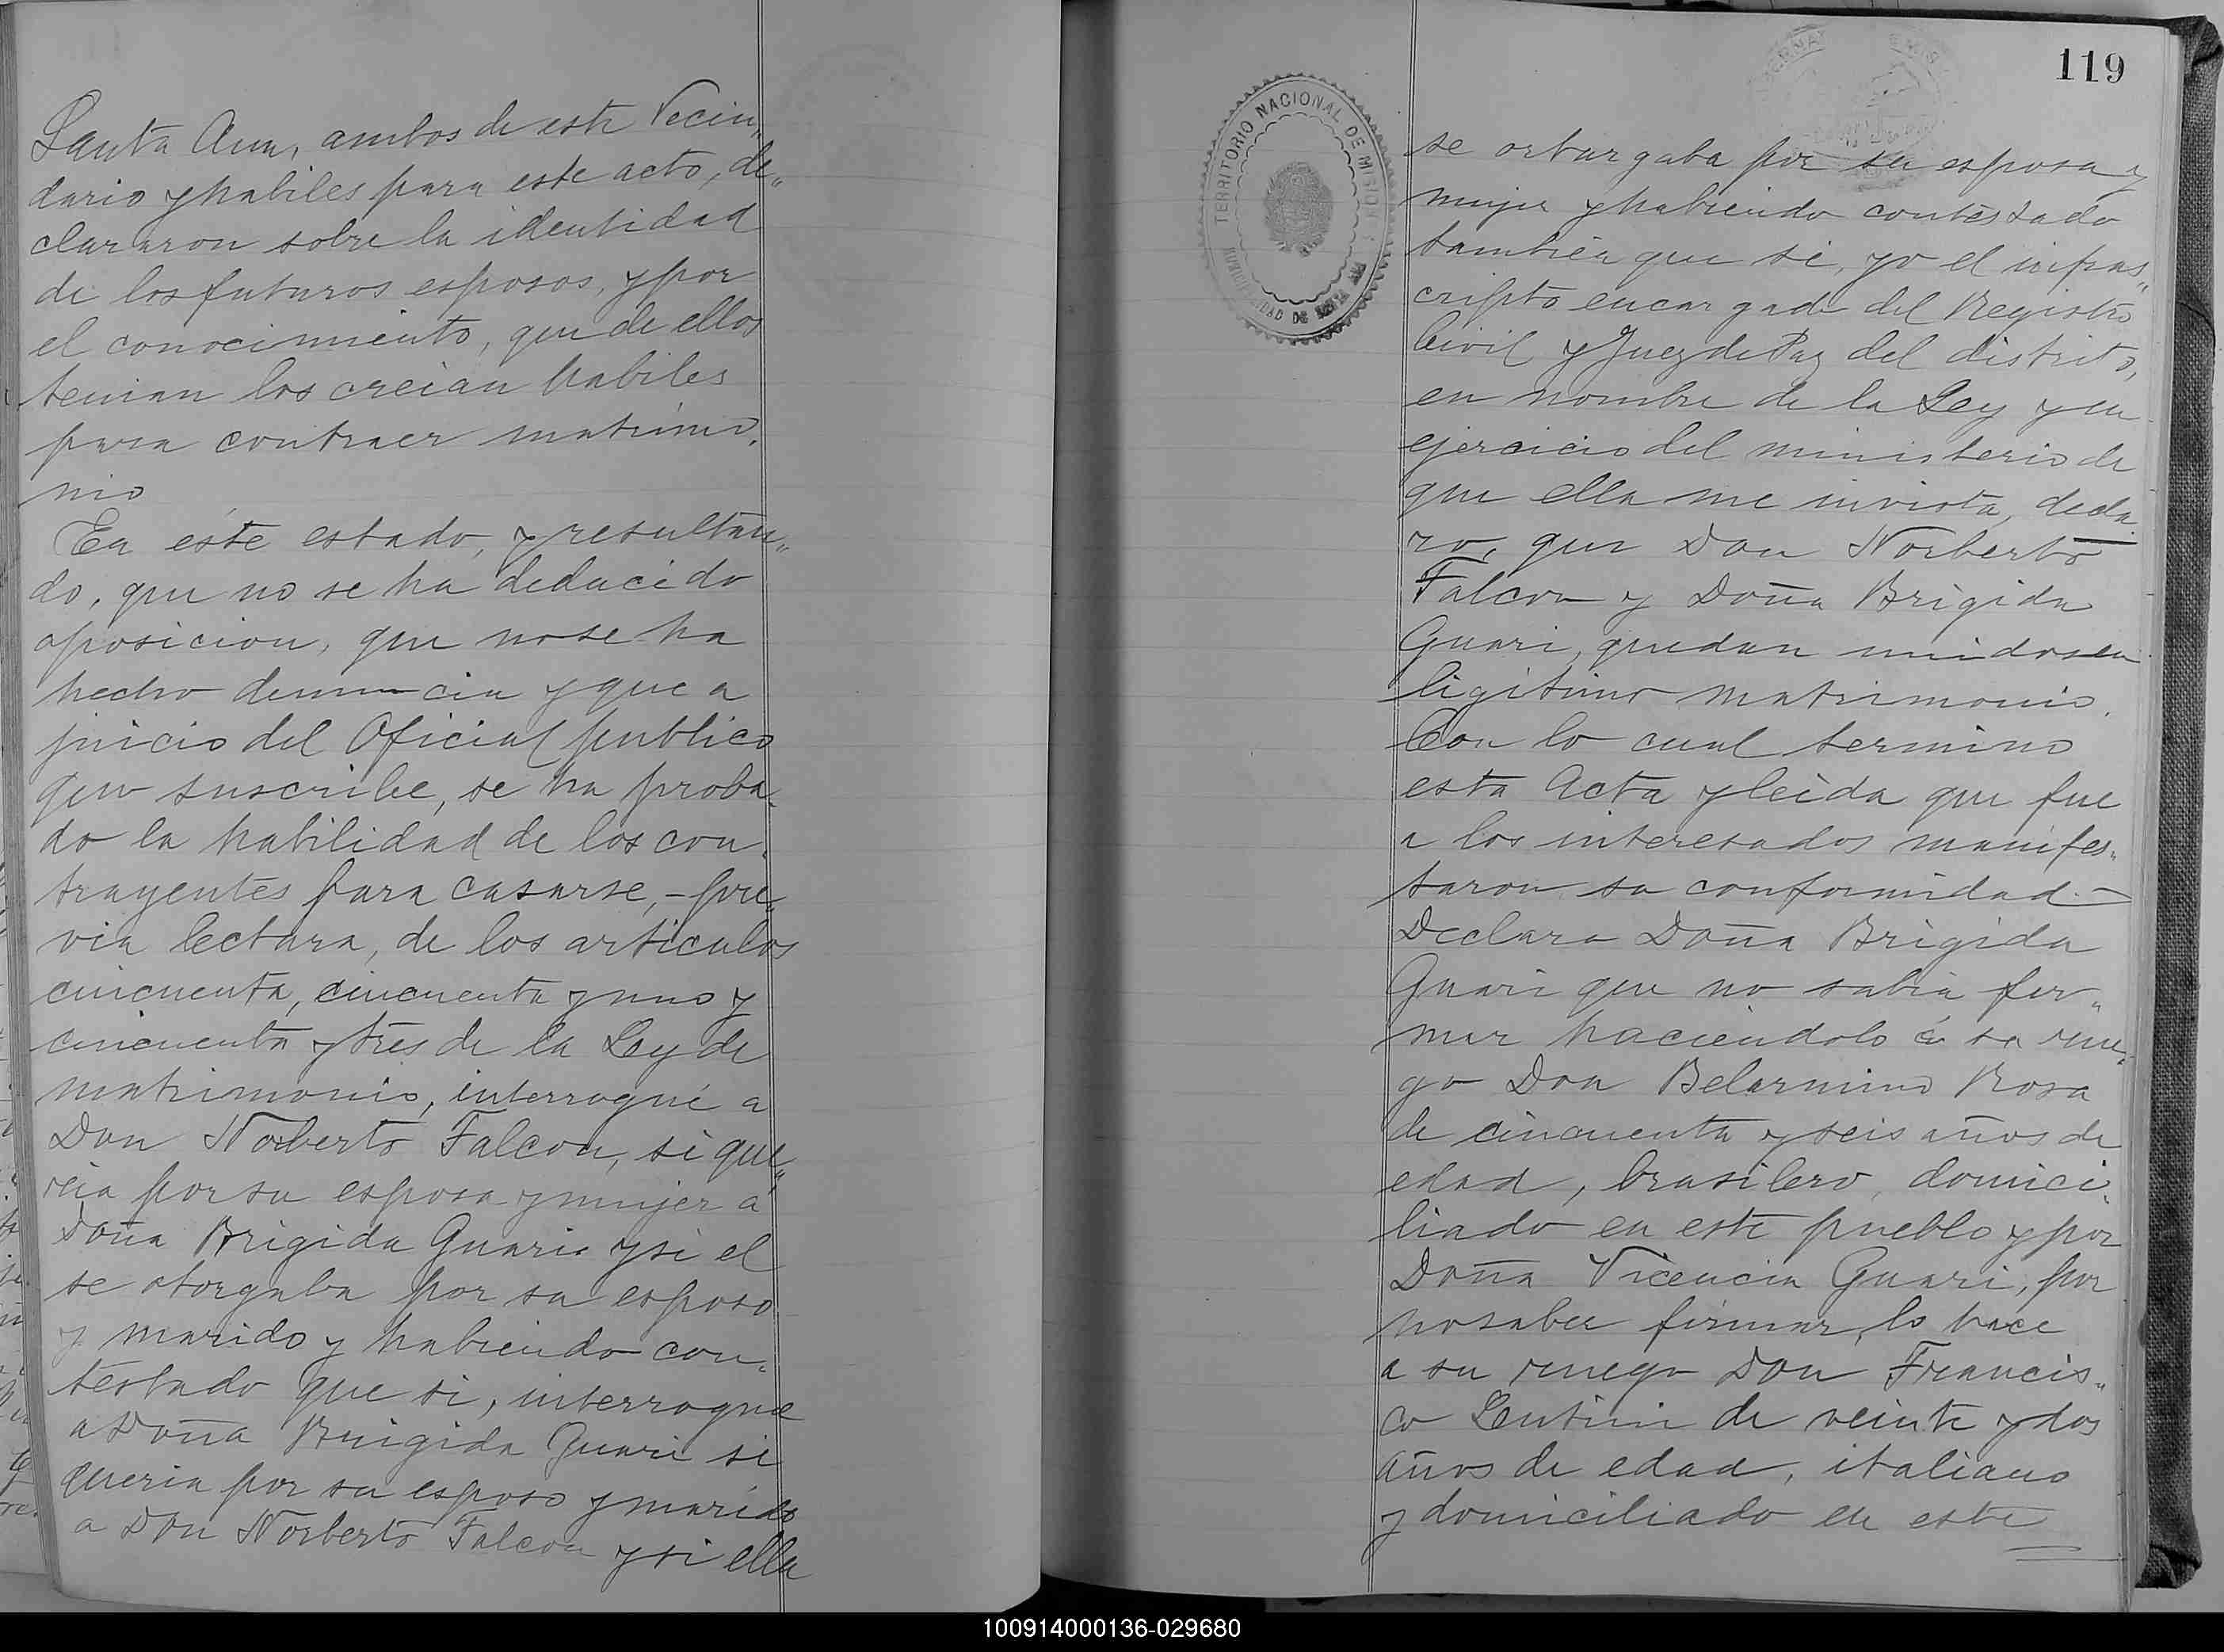 Santa Ana, ambos de este Vecin„
dario y habiles para este acto, de„
clararon sobre la identidad
de los futuros esposos, y por
el conocimiento, que de ellos
tenian los creian habiles
para contraer matrimo„
nio
En éste estado, y resultan„
do, que no se ha deducido
oposicion, que no se ha
hecho denuncia y que a
juicio del Oficial publico
que suscribe, se ha proba„
do la habilidad de los con„
trayentes para casarse, - pre„
via lectura, de los articulos
cincuenta, cincuenta y uno y
cincuenta y tres de la Ley de
matrimonio, interrogué a
Don Norberto Falcon, si que„
ria por su esposa y mujer a
Doña Brigida Guari y si el
se otorgaba por su esposo
y marido y habiendo con„
testado que si, interrogue
a Doña Brigida Guari si
queria por su esposo y marido
a Don Norberto Falcon y si ella
119
TERRITORIO NACIONAL DE MISIONES
MUNICIPALIDAD DE
se orturgaba por su esposa y
mujer y habiendo contestado
también que si, yo el infras„
cripto encargado del Registro
Civil y Juez de Paz del distrito,
en nombre de la Ley y en
ejercicio del ministerio de
que ella me invista, decla
ro, que Don Norberto
Falcon y Doña Brigida
Guari, quedan unidos en
ligitimo matrimonio.
Con lo cual termino
esta Acta y leida que fue
a los interesados manifes„
taron su conformidad. —
Declara Doña Brigida
Guari que no sabia fir„
mar haciendolo á su rue„
go Don Belarmino Rosa
de cincuenta y seis años de
edad, brasilero, domici„
liado en este pueblo y por
Doña Vicencia Guari, por
no saber firmar, lo hace
a su ruego Don Francis„
co Lentini de veinte y dos
años de edad, italiano
y domiciliado en este
100914000136-029680